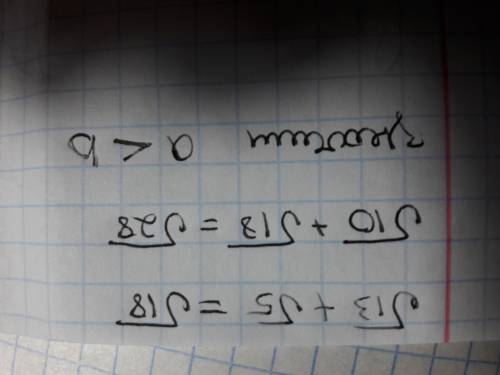 √13 + √5 = √18
√10 + √18 = √28
значит a > b